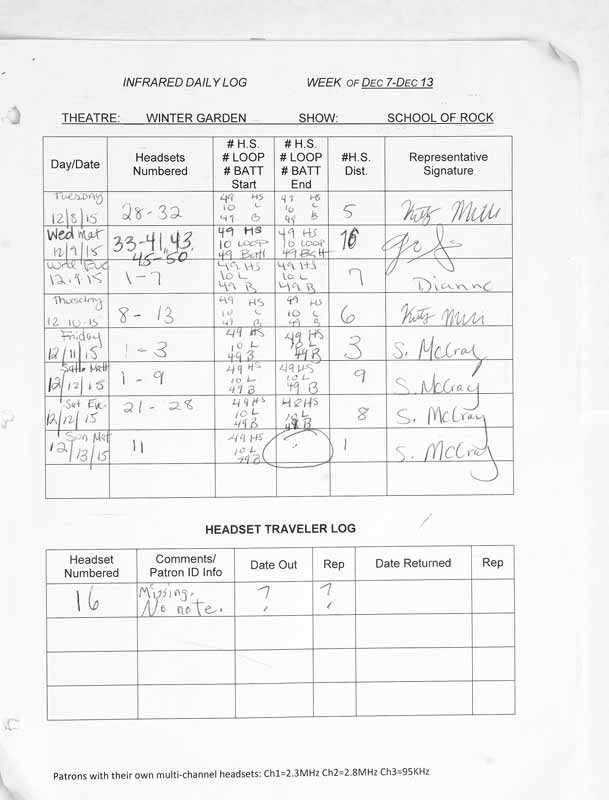 INFRARED DAILY LOG WEEK OF DEC 7-DEC 13
THEATRE: WINTER GARDEN SHOW: SCHOOL OF ROCK
Day/Date Headsets Numbered # H.S. # LOOP # BATT Start # H.S. # LOOP # BATT End #H.S. Dist. Representative Signature
Tuesday 12/8/15 28-32 49 HS 10 L 49 B 49 HS 10 L 49 B 5
Wed Mat 12/9/15 33-41, 43, 45-50 49 HS 10 LOOP 49 Batt 49 HS 10 LOOP 49 Batt
Wed Eve 12.9.15 1-7 49 HS 10 L 49 B 49 HS 10 L 49 B 7 Dianne
Thursday 12-10-15 8-13 49 HS 10 L 49 B 49 HS 10 L 49 B 6
Friday 12/11/15 1-3 49 HS 10 L 49 B 49 HS 10 L 49 B 3 S. McCray
12/12/15 1-9 49 HS 10 L 49 B 49 HS 10 L 49 B 9 S. McCray
Sat Eve. 12/12/15 21-28 49 HS 10 L 49 B 48 HS 10 L 8 S. McCray
Sun Mat 12/13/15 11 49 HS 10 L 49 B 1 S. McCray
HEADSET TRAVELER LOG
Headset Numbered Comments/ Patron ID Info Date Out Rep Date Returned Rep
16 Missing. No note. ? ?
Patrons with their own multi-channel headsets: Ch1=2.3MHz Ch2=2.8MHz Ch3=95KHz